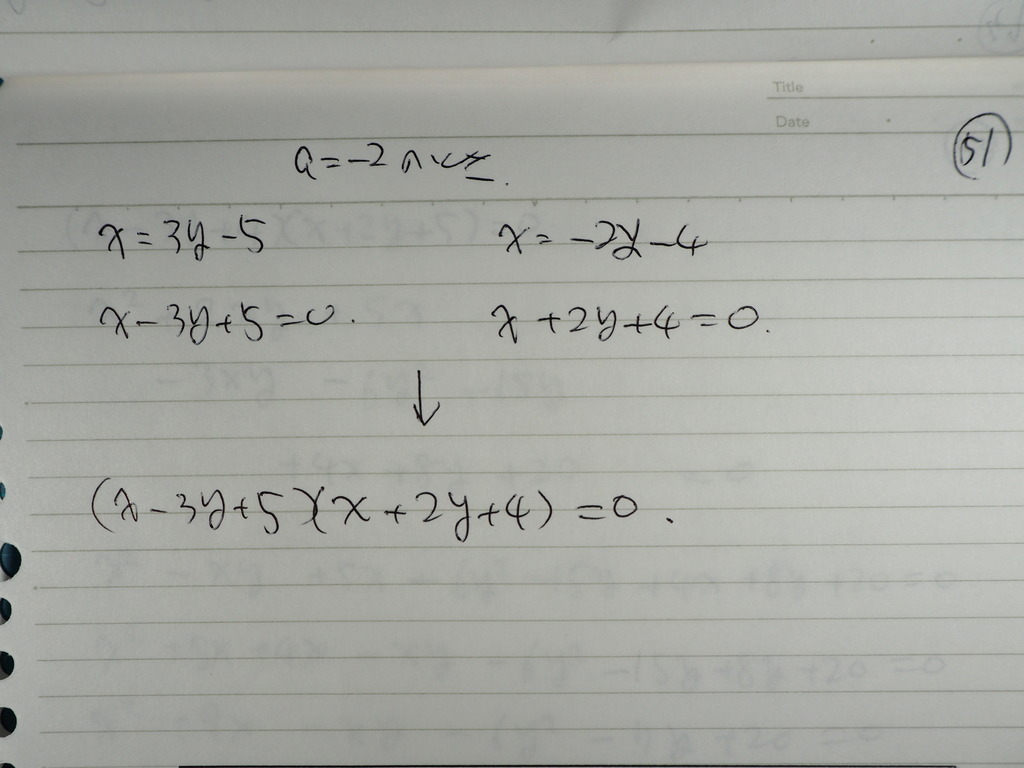 Title
Date
51
a=-2 のとき.
x=3y-5 x=-2y-4
x-3y+5=0. x+2y+4=0.
↓
(x-3y+5)(x+2y+4)=0.